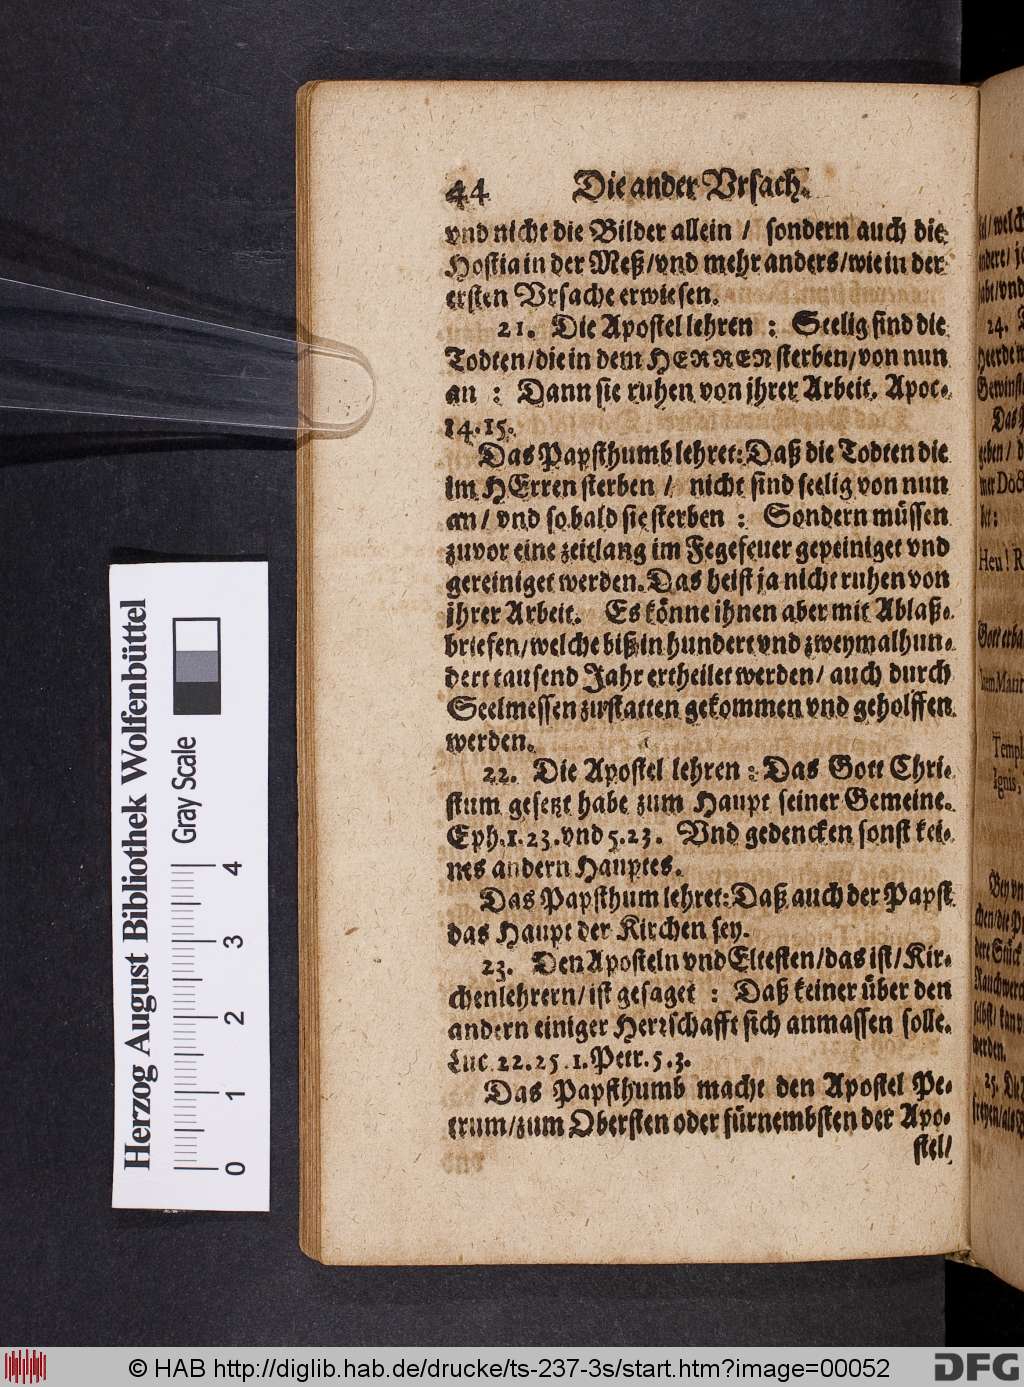 44 Die ander Vrsach.
vnd nicht die Bilder allein / sondern auch die
Hostia in der Meß/vnd mehr anders/wie in der
ersten Vrsache erwiesen.
21. Die Apostel lehren : Seelig sind die
Todten/die in dem HERREN sterben/von nun
an : Dann sie ruhen von jhrer Arbeit. Apoc.
14.15.
Das Papsthumb lehret: Daß die Todten die
im HErren sterben / nicht sind seelig von nun
an / vnd so bald sie sterben : Sondern müssen
zuvor eine zeitlang im Fegefeuer gepeiniget vnd
gereiniget werden. Das heist ja nicht ruhen von
jhrer Arbeit. Es könne ihnen aber mit Ablaß-
briefen/welche biß in hundert vnd zweymalhun-
dert tausend Jahr ertheilet werden/ auch durch
Seelmessen zustatten gekommen vnd geholffen
werden.
22. Die Apostel lehren : Das Gott Chri-
stum gesetzt habe zum Haupt seiner Gemeine.
Eph.1.23.vnd 5.23. Vnd gedencken sonst kei-
nes andern Hauptes.
Das Papsthum lehret: Daß auch der Papst
das Haupt der Kirchen sey.
23. Den Aposteln vnd Eltesten/das ist/Kir-
chenlehrern/ ist gesaget : Daß keiner über den
andern einiger Herrschafft sich anmassen solle.
Luc. 22.25. 1. Petr. 5.3.
Das Papsthumb macht den Apostel Pe-
trum/zum Obersten oder fürnembsten der Apo-
stel/
welch
24.
Heerden
Gewinst
geben / d
Heu! R
Gott erba
Templ
Ignis,
chen/die
dere Stück
Rauchwerck
selbst/ kan
werden.
25. Die
Herzog August Bibliothek Wolfenbüttel
Gray Scale
0 1 2 3 4
© HAB http://diglib.hab.de/drucke/ts-237-3s/start.htm?image=00052
DFG